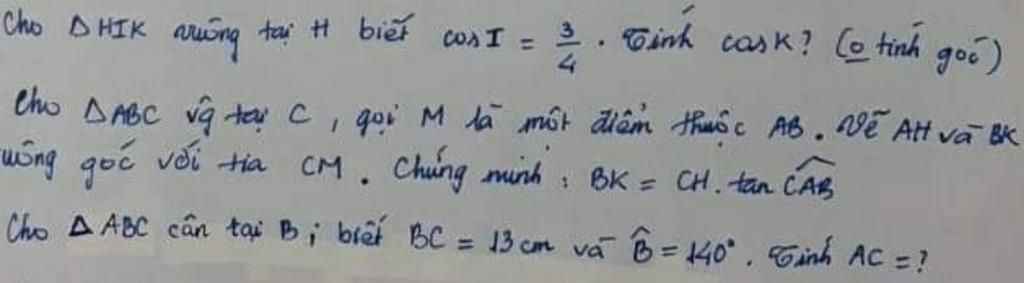 Cho Δ HIK vuông tại H biết cos I = 3/4 . Tính cos K? (o tính góc)
Cho ΔABC vg tại C, gọi M là một điểm thuộc AB. Vẽ AH và BK
uông góc với tia CM. Chứng minh: BK = CH. tan \widehat{CAB}
Cho Δ ABC cân tại B; biết BC = 13 cm và \hat{B} = 140°. Tính AC = ?